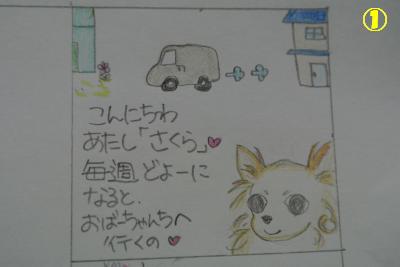 ①
こんにちわ
あたし「さくら」♥
毎週 どよーに
なると、
おばーちゃんちへ
行くの♥